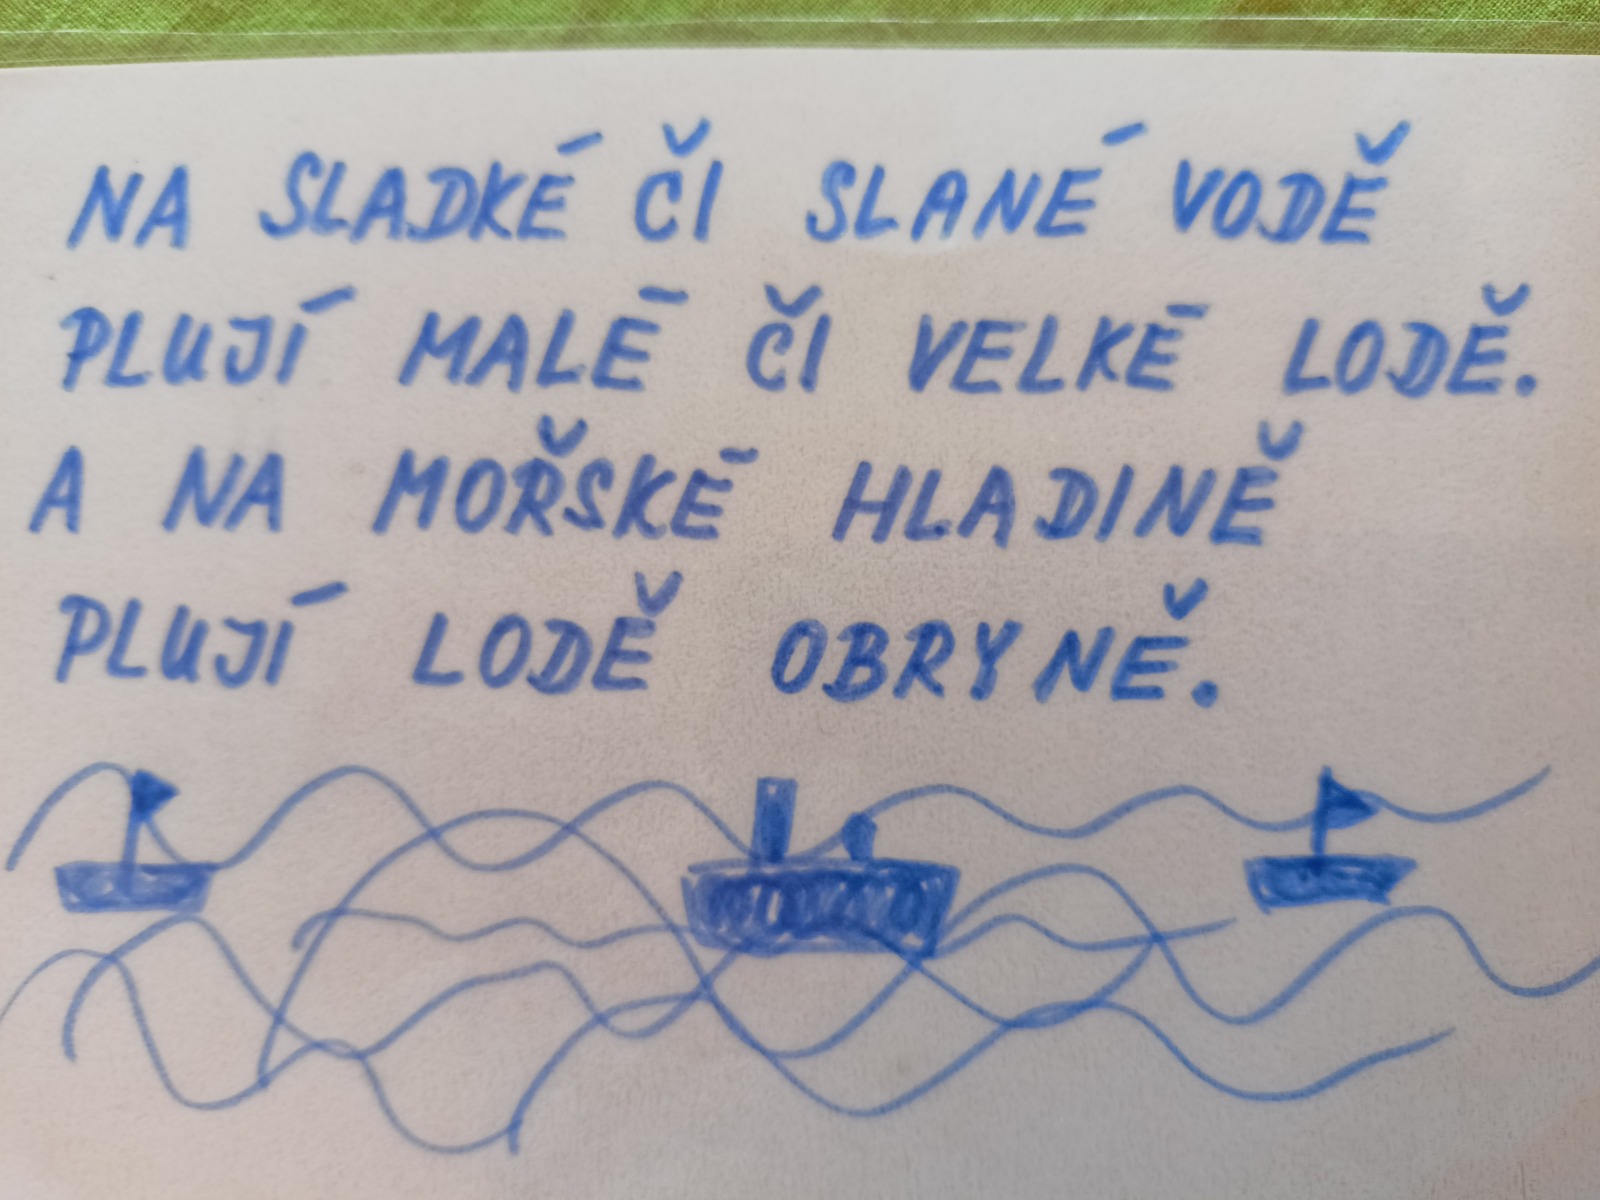 NA SLADKÉ ČI SLANÉ VODĚ
PLUJÍ MALÉ ČI VELKÉ LODĚ.
A NA MOŘSKÉ HLADINĚ
PLUJÍ LODĚ OBRYNĚ.